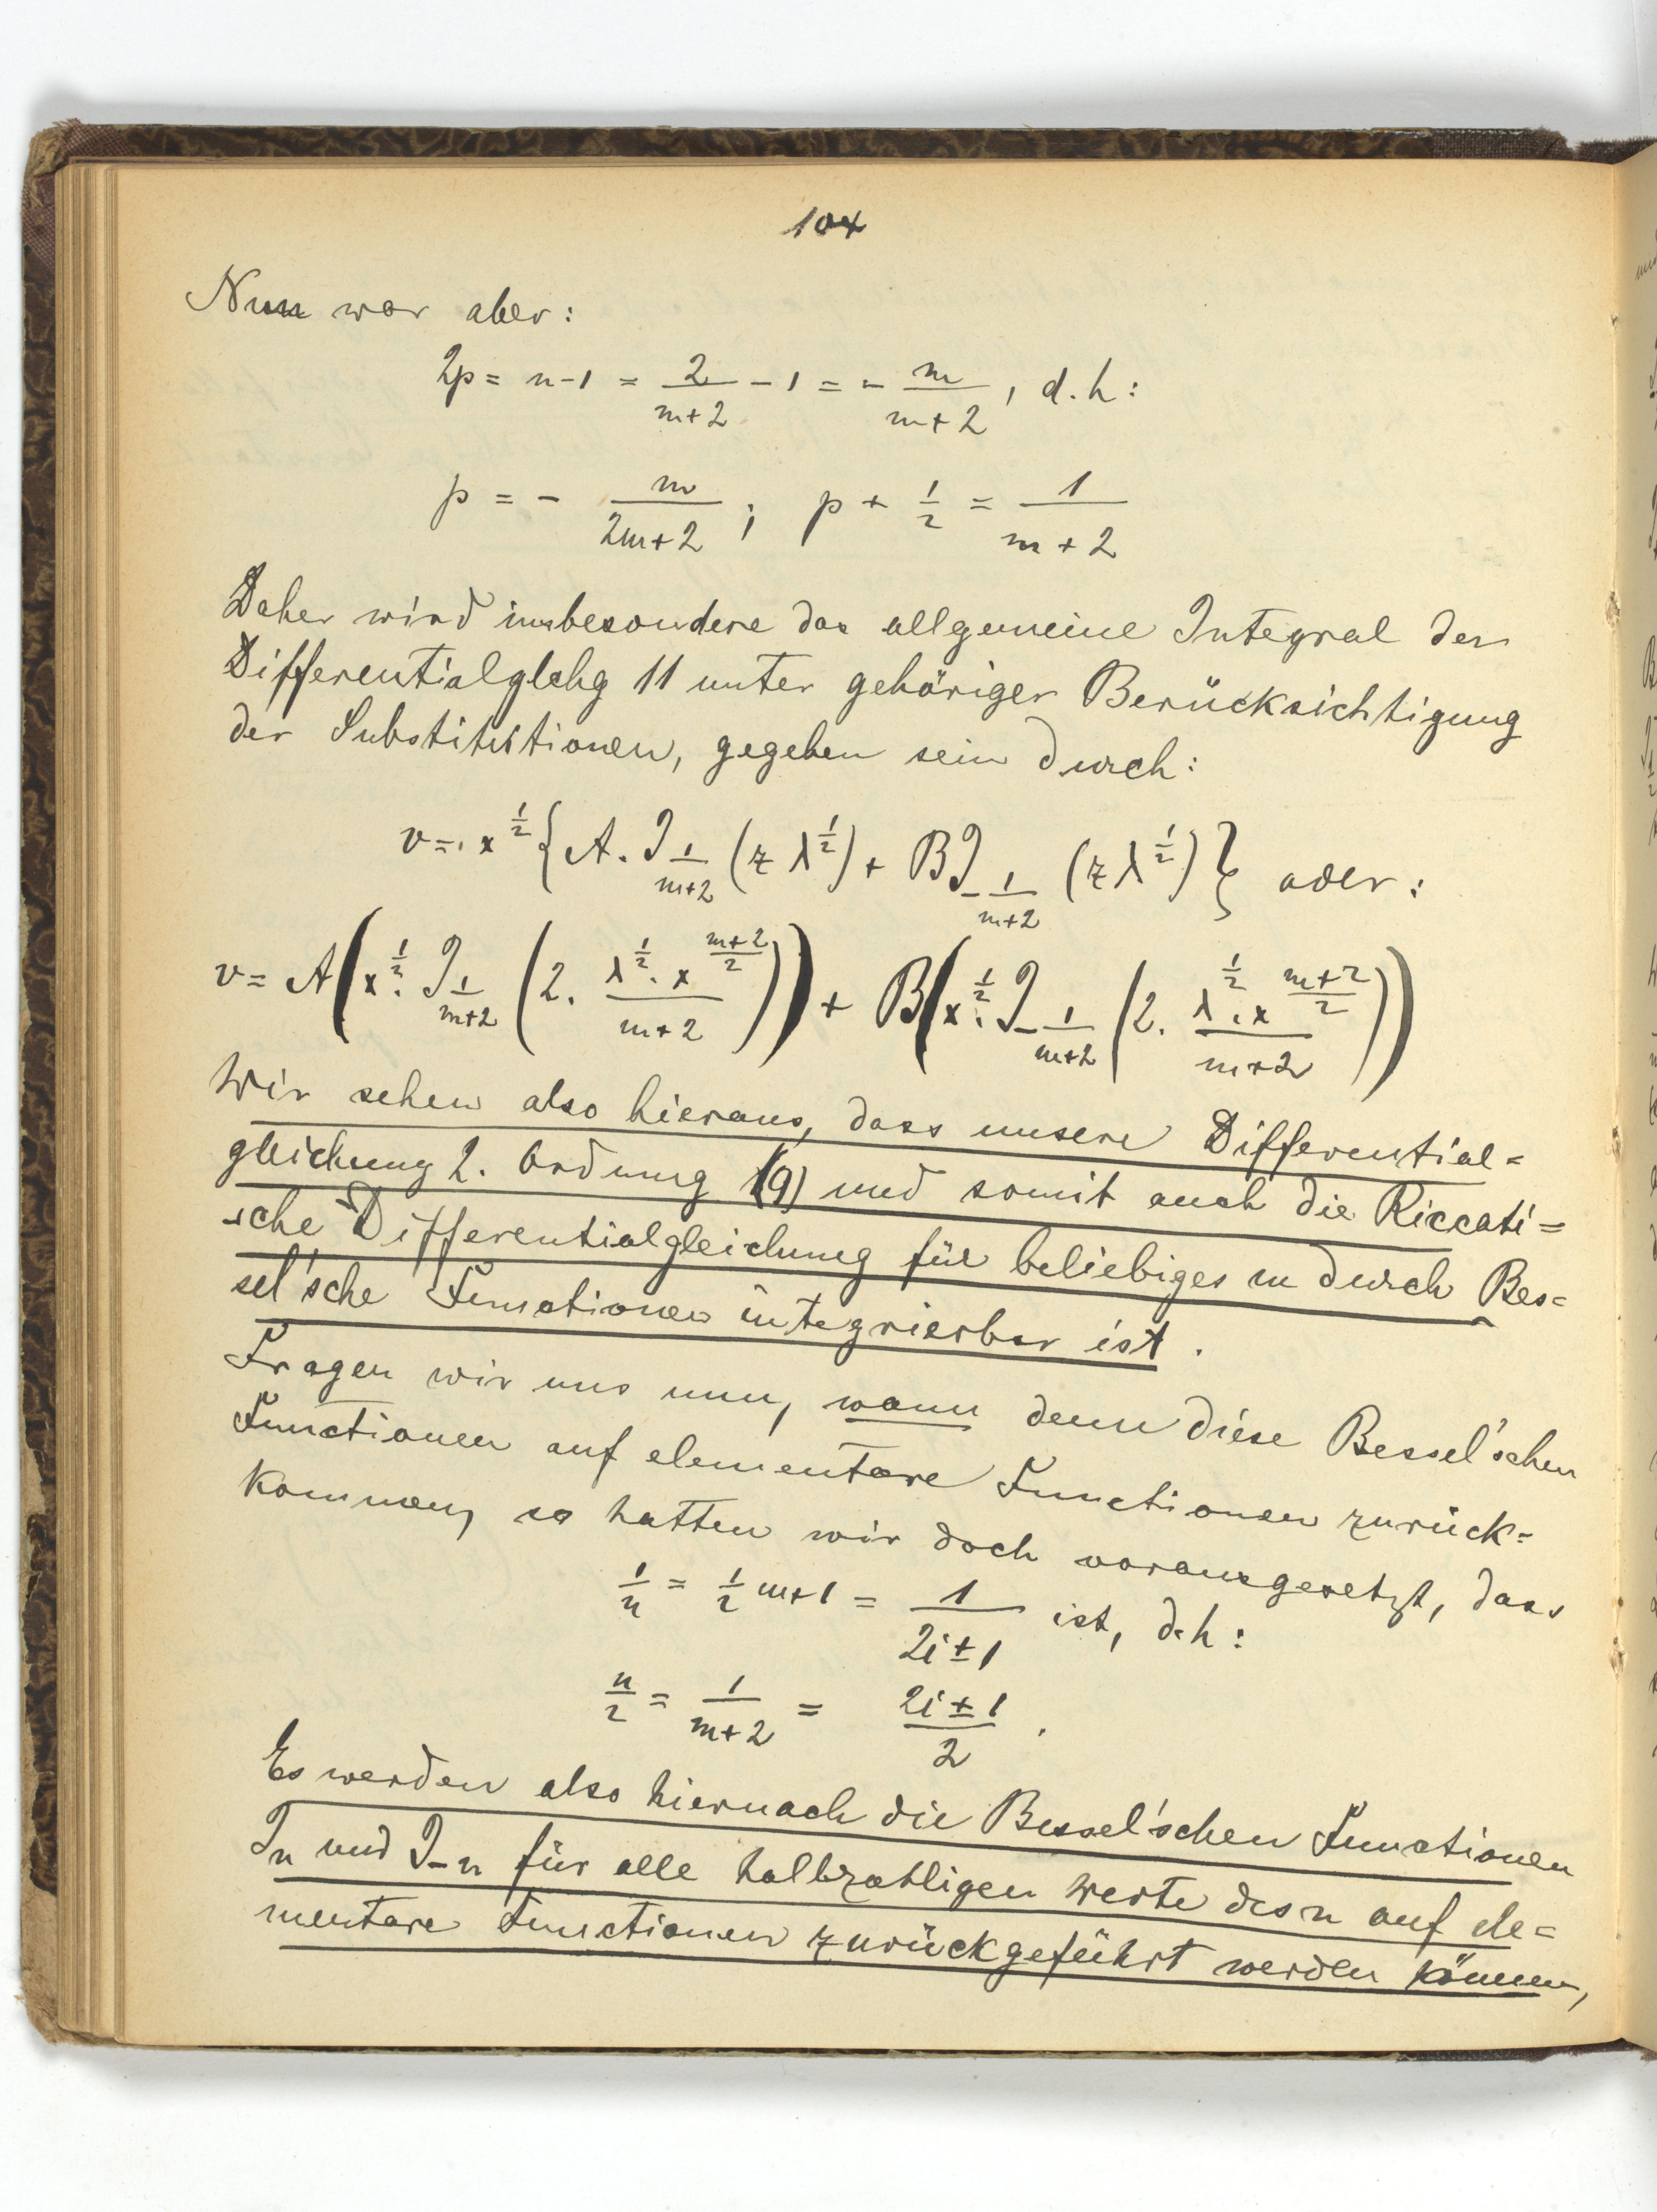 104
Nun war aber:
2p = n-1 = \frac{2}{m+2} - 1 = - \frac{m}{m+2}, d.h:
p = - \frac{m}{2m+2}; p + \frac{1}{2} = \frac{1}{m+2}
Daher wird insbesondere das allgemeine Integral der
Differentialglchg 11 unter gehöriger Berücksichtigung
der Substitutionen, gegeben sein durch:
v = x^{\frac{1}{2}} \{ A. J_{\frac{1}{m+2}} (z λ^{\frac{1}{2}}) + B J_{-\frac{1}{m+2}} (z λ^{\frac{1}{2}}) \} oder:
v = A ( x^{\frac{1}{2}}. J_{\frac{1}{m+2}} ( 2. \frac{λ^{\frac{1}{2}}. x^{\frac{m+2}{2}}}{m+2} ) ) + B ( x^{\frac{1}{2}}. J_{-\frac{1}{m+2}} ( 2. \frac{λ^{\frac{1}{2}}. x^{\frac{m+2}{2}}}{m+2} ) )
Wir sehen also hieraus, dass unsere Differential=
gleichung 2. Ordnung (9) und somit auch die Riccati=
sche Differentialgleichung für beliebiges m durch Bes=
sel'sche Functionen integrierbar ist.
Fragen wir uns nun, wann denn diese Bessel'schen
Functionen auf elementare Functionen zurück=
kommen, so hatten wir doch vorausgesetzt, dass
\frac{1}{n} = \frac{1}{2} m+1 = \frac{1}{2i±1} ist, d.h:
\frac{n}{2} = \frac{1}{m+2} = \frac{2i±1}{2}.
Es werden also hiernach die Bessel'schen Functionen
J_n und J_{-n} für alle halbzahligen Werte des n auf ele=
mentare Functionen zurückgeführt werden können,